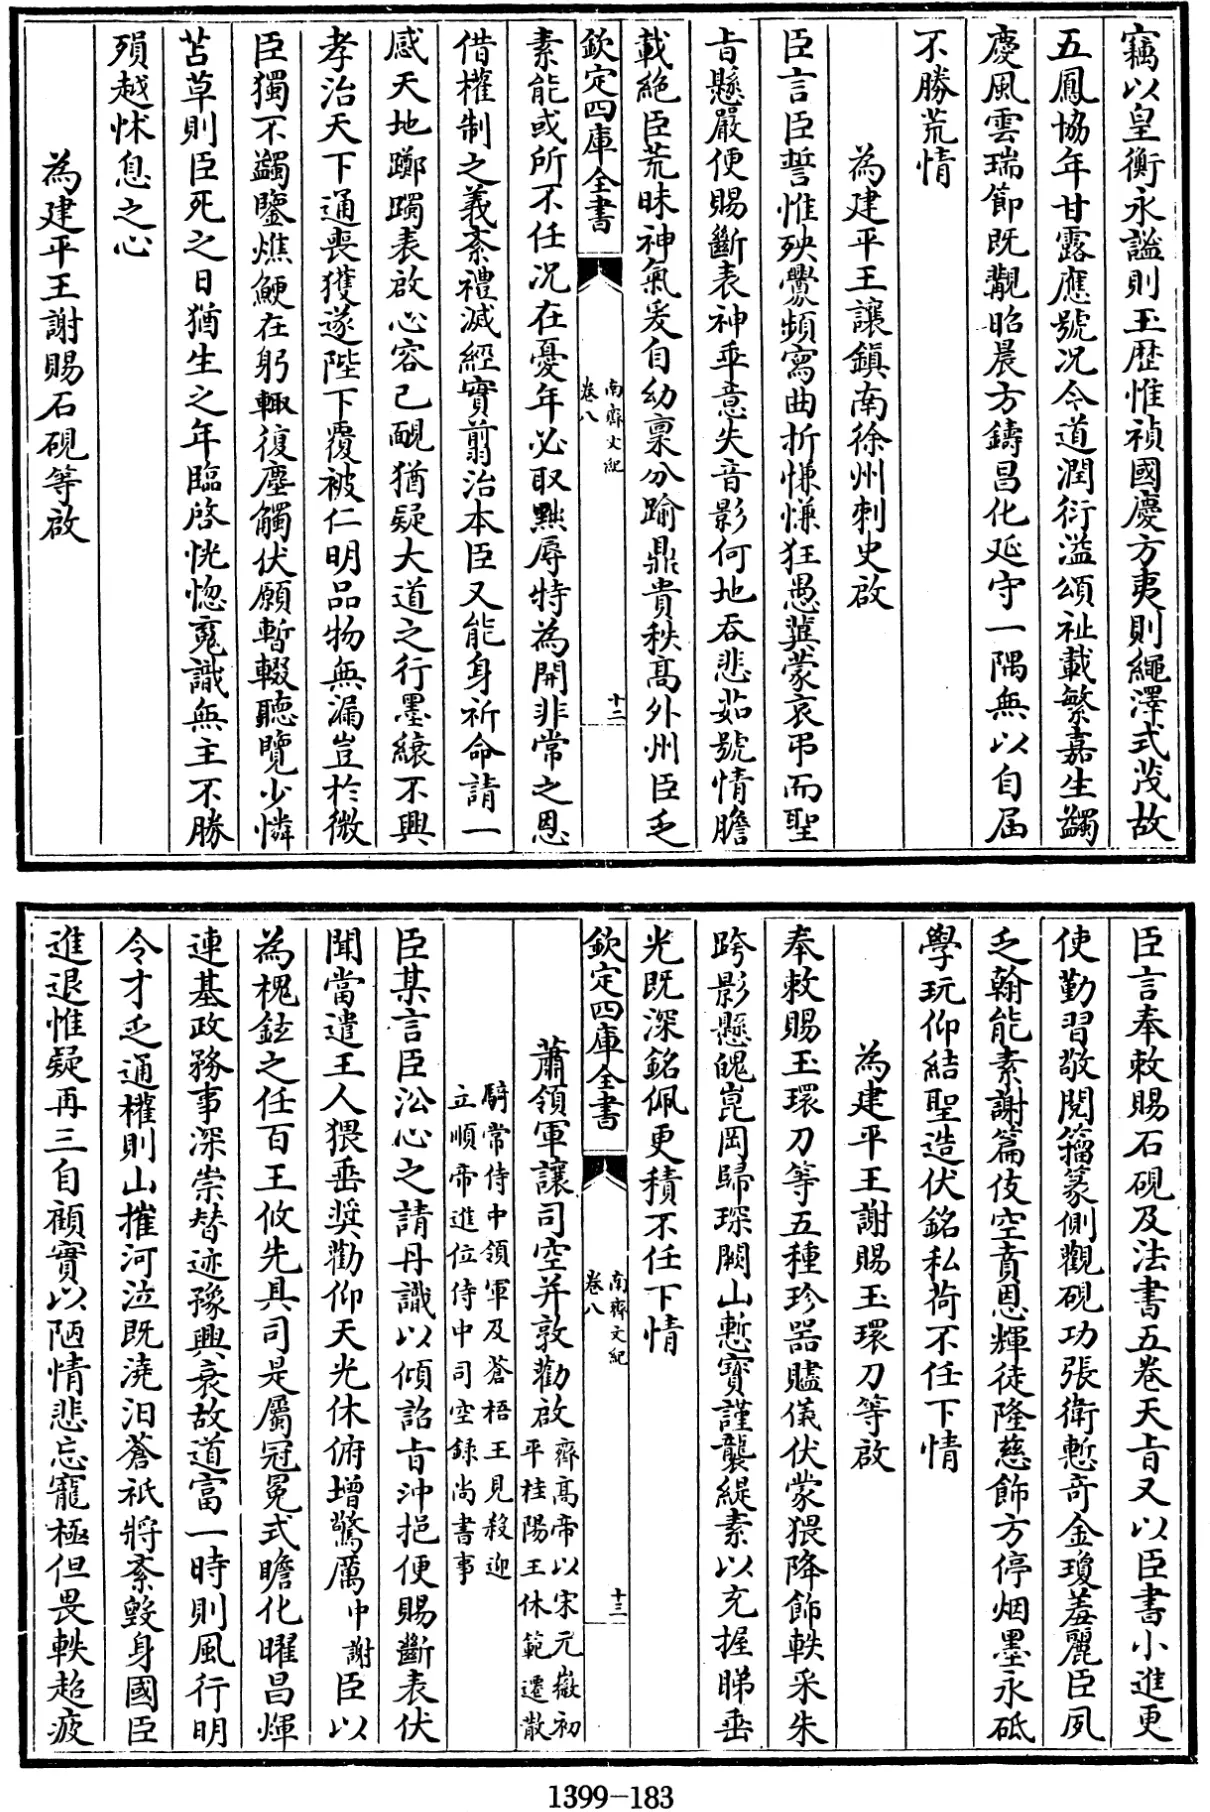 竊以皇衡永謐則玉歴惟禎國慶方夷則繩澤式茂故
五鳳協年甘露應號况今道潤衍溢頌祉載繁嘉生蠲
慶風雲瑞節既覿昭晨方鑄昌化延守一隅無以自届
不勝荒情
為建平王讓鎮南徐州刺史啟
臣言臣誓惟殃釁頻寫曲折慊慊狂愚冀蒙哀弔而聖
㫖懸嚴便賜斷表神乖意失音影何地吞悲茹號情膽
載絶臣荒昧神氣爰自幼稟分踰鼎貴秩髙外州臣乏
欽定四庫全書
南齊文紀
卷八
十二
素能或所不任况在憂年必取黜辱特為開非常之恩
借權制之義紊禮滅經實翦治本臣又能身祈命請一
感天地躑躅表啟心容已靦猶疑大道之行墨縗不興
孝治天下通喪獲遂陛下覆被仁明品物無漏豈於微
臣獨不蠲鑒燋鯁在躬輙復塵觸伏願暫輟聽覽少憐
苫草則臣死之日猶生之年臨啓恍惚寃識無主不勝
殞越怵息之心
為建平王謝賜石硯等啟
臣言奉敕賜石硯及法書五卷天㫖又以臣書小進更
使勤習敬閲籀篆側觀硯功張衛慙奇金瓊羞麗臣夙
乏翰能素謝篇伎空賁恩輝徒隆慈飾方停烟墨永砥
學玩仰結聖造伏銘私荷不任下情
為建平王謝賜玉環刀等啟
奉敕賜玉環刀等五種珍器贐儀伏蒙猥降飾軼采朱
跨影懸魄崑岡歸琛闕山慙寳謹襲緹素以充握睇垂
光既深銘佩更積不任下情
欽定四庫全書
南齊文紀
卷八
十三
蕭領軍讓司空并敦勸啟
齊髙帝以宋元嶶初
平桂陽王休範遷散
騎常侍中領軍及蒼梧王見殺迎
立順帝進位侍中司空録尚書事
臣某言臣訟心之請丹識以傾詔㫖沖挹便賜斷表伏
聞當遣王人猥垂奨勸仰天光休俯增驚厲中謝臣以
為槐鉉之任百王攸先具司是屬冠冕式瞻化曜昌煇
連基政務事深崇替迹豫興衰故道富一時則風行明
令才乏通權則山摧河泣既澆汨蒼祇將紊毁身國臣
進退惟疑再三自顧實以陋情悲忘寵極但畏軼超疲
1399-183